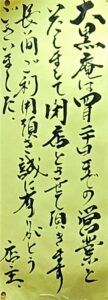 大黒庵は四月二十日の営業と
いたしまして閉店とさせて頂きます
長い間ご利用頂き誠に有りがとう
ございました 店主